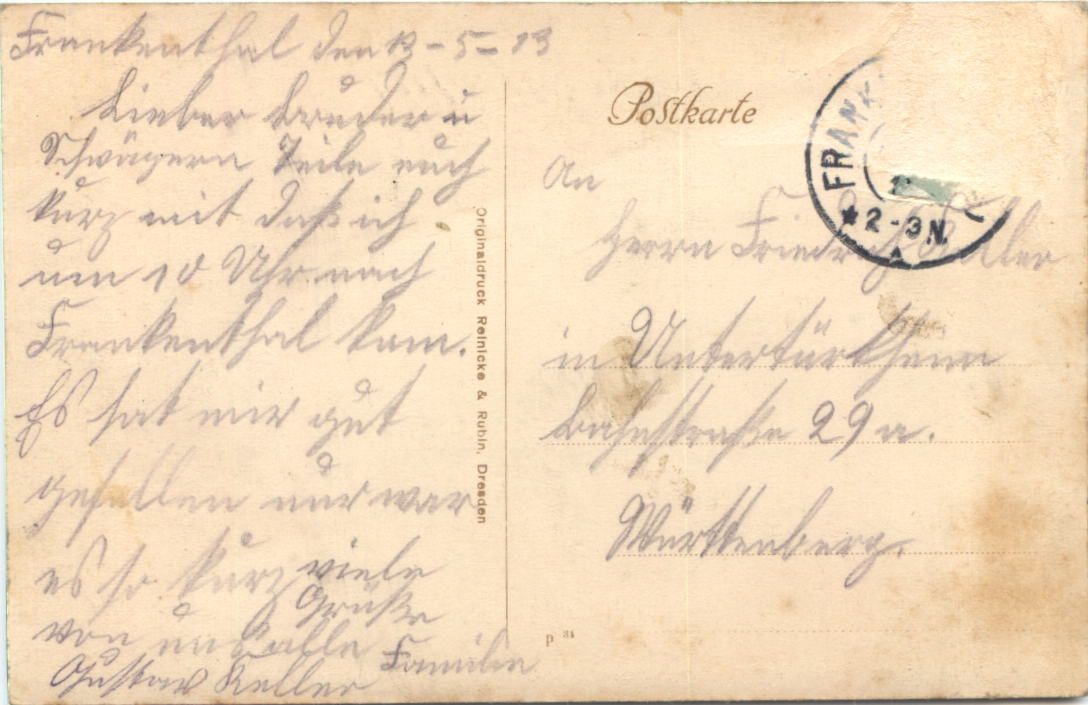 Frankenthal den 13-5-13
Lieber Bruder u
Schwägern Teile euch
kurz mit daß ich
um 10 Uhr nach
Frankenthal kam.
Es hat mir gut
gefallen nur war
es so kurz viele
Grüße
von uns alle
Familie
Gustav Keller
Originaldruck Reinicke & Rubin, Dresden
Postkarte
An
Herrn Friedrich Keller
in Untertürkheim
Bahnstraße 29 a.
Württenberg.
P. 31
FRANK
* 2-3 N.